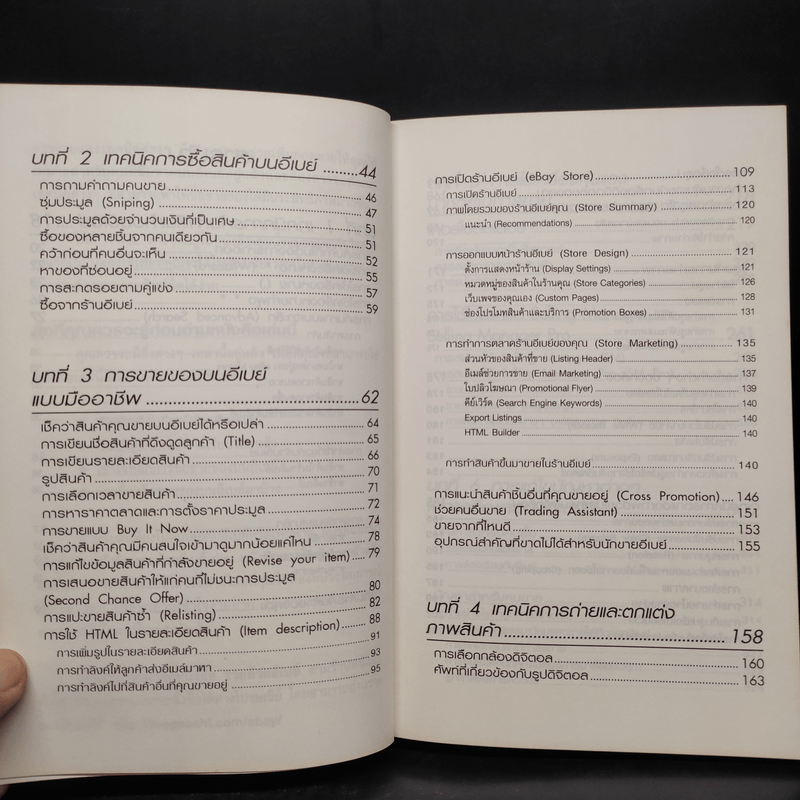 บทที่ 2 เทคนิคการซื้อสินค้าบนอีเบย์ ........44
การถามคำถามคนขาย ........ 46
ซุ่มประมูล (Sniping) ........ 47
การประมูลด้วยจำนวนเงินที่เป็นเศษ ........ 51
ซื้อของหลายชิ้นจากคนเดียวกัน ........ 51
คว้าก่อนที่คนอื่นจะเห็น ........ 52
หาของที่ซ่อนอยู่ ........ 55
การสะกดรอยตามคู่แข่ง ........ 57
ซื้อจากร้านอีเบย์ ........ 59
บทที่ 3 การขายของบนอีเบย์
แบบมืออาชีพ ........ 62
เช็คว่าสินค้าคุณขายบนอีเบย์ได้หรือเปล่า ........ 64
การเขียนชื่อสินค้าที่ดึงดูดลูกค้า (Title) ........ 65
การเขียนรายละเอียดสินค้า ........ 66
รูปสินค้า ........ 70
การเลือกเวลาขายสินค้า ........ 71
การหาราคาตลาดและการตั้งราคาประมูล ........ 72
การขายแบบ Buy It Now ........ 74
เช็คว่าสินค้าคุณมีคนสนใจเข้ามาดูมากน้อยแค่ไหน ........ 78
การแก้ไขข้อมูลสินค้าที่กำลังขายอยู่ (Revise your item) ........ 79
การเสนอขายสินค้าให้แก่คนที่ไม่ชนะการประมูล
(Second Chance Offer) ........ 80
การแปะขายสินค้าซ้ำ (Relisting) ........ 82
การใช้ HTML ในรายละเอียดสินค้า (Item description) ........ 88
การเพิ่มรูปในรายละเอียดสินค้า ........ 91
การทำลิงค์ให้ลูกค้าส่งอีเมล์มาหา ........ 93
การทำลิงค์ไปที่สินค้าอื่นที่คุณขายอยู่ ........ 95
การเปิดร้านอีเบย์ (eBay Store) ........ 109
การเปิดร้านอีเบย์ ........ 113
ภาพโดยรวมของร้านอีเบย์คุณ (Store Summary) ........ 120
แนะนำ (Recommendations) ........ 120
การออกแบบหน้าร้านอีเบย์ (Store Design) ........ 121
ตั้งการแสดงหน้าร้าน (Display Settings) ........ 121
หมวดหมู่ของสินค้าในร้านคุณ (Store Categories) ........ 126
เว็บเพจของคุณเอง (Custom Pages) ........ 128
ช่องโปรโมทสินค้าและบริการ (Promotion Boxes) ........ 131
การทำการตลาดร้านอีเบย์ของคุณ (Store Marketing) ........ 135
ส่วนหัวของสินค้าที่ขาย (Listing Header) ........ 135
อีเมล์ช่วยการขาย (Email Marketing) ........ 137
ใบปลิวโฆษณา (Promotional Flyer) ........ 139
คีย์เวิร์ด (Search Engine Keywords) ........ 140
Export Listings ........ 140
HTML Builder ........ 140
การทำสินค้าขึ้นมาขายในร้านอีเบย์ ........ 140
การแนะนำสินค้าชิ้นอื่นที่คุณขายอยู่ (Cross Promotion) .... 146
ช่วยคนอื่นขาย (Trading Assistant) ........ 151
ขายจากที่ไหนดี ........ 153
อุปกรณ์สำคัญที่ขาดไม่ได้สำหรับนักขายอีเบย์ ........ 155
บทที่ 4 เทคนิคการถ่ายและตกแต่ง
ภาพสินค้า ........ 158
การเลือกกล้องดิจิตอล ........ 160
ศัพท์ที่เกี่ยวข้องกับรูปดิจิตอล ........ 163